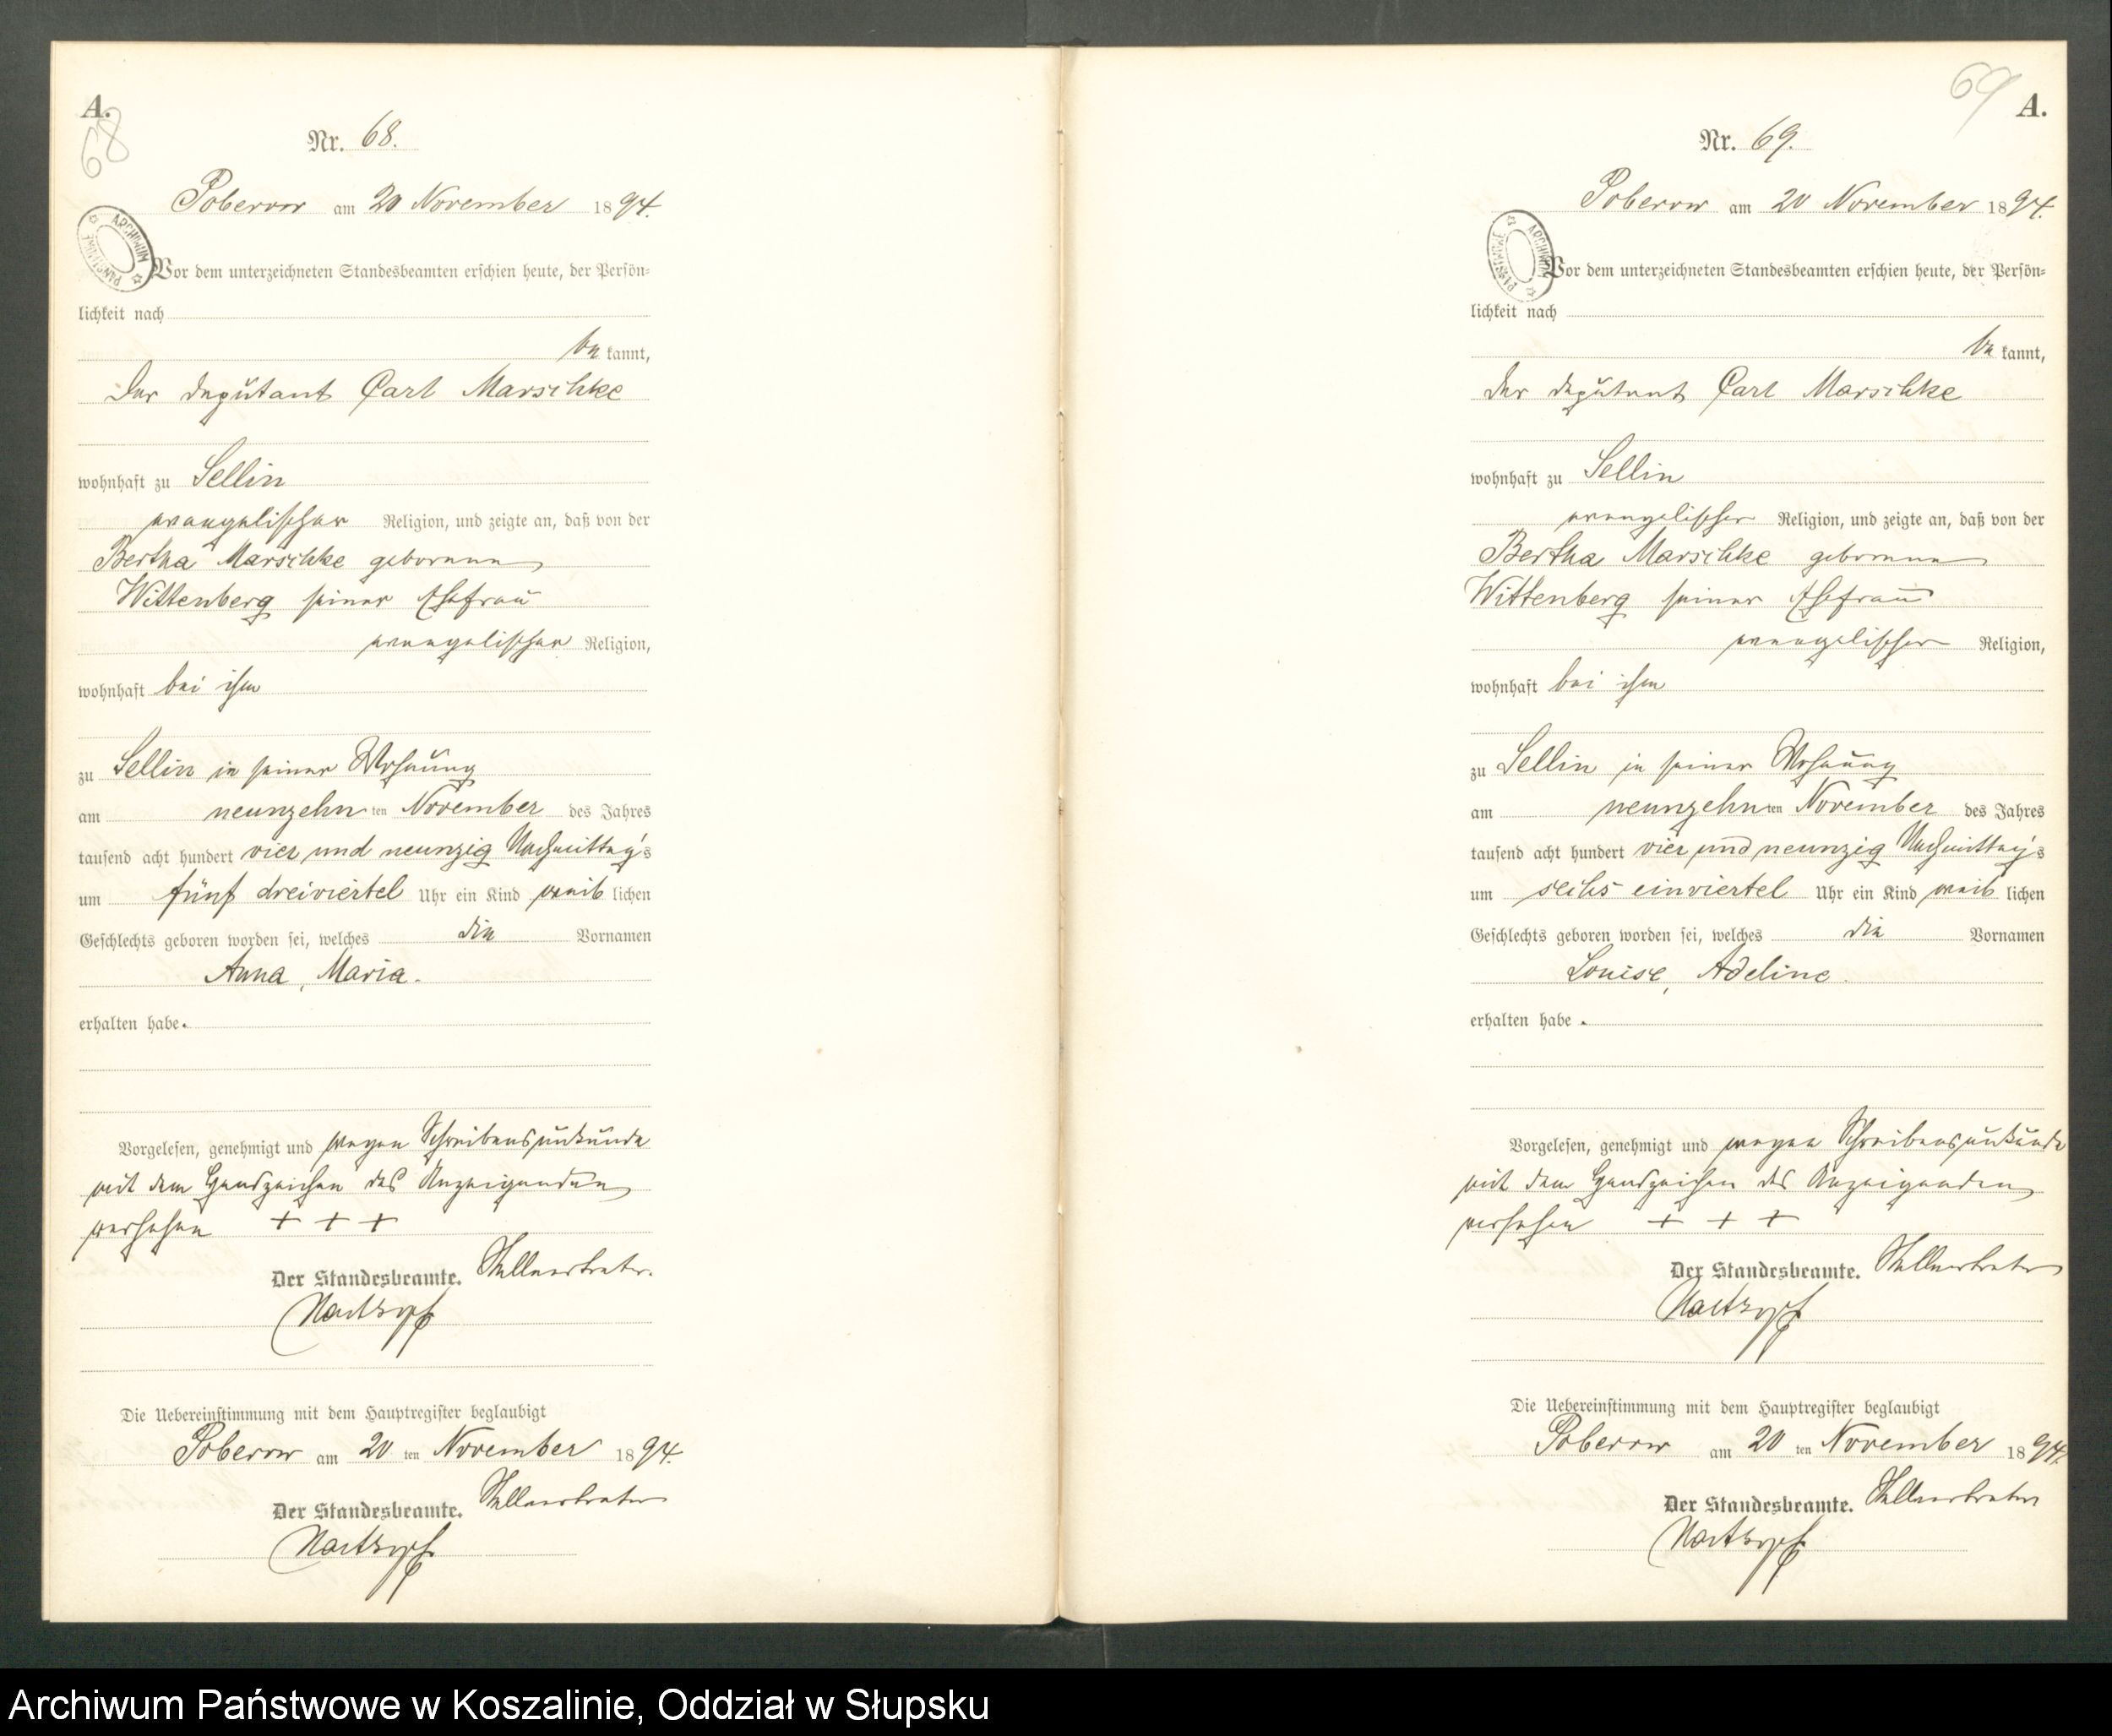 A.
68
Nr. 68.
Poberow am 20 November 1894.
ARCHIWUM PAŃSTWOWE
Vor dem unterzeichneten Standesbeamten erschien heute, der Persön-
lichkeit nach
be kannt,
der Deputant Carl Marschke
wohnhaft zu Sellin
evangelischer Religion, und zeigte an, daß von der
Bertha Marschke geborene
Wittenberg seiner Ehefrau
evangelischer Religion,
wohnhaft bei ihm
zu Sellin in seiner Wohnung
am neunzehn ten November des Jahres
tausend acht hundert vier und neunzig Nachmittags
um fünf dreiviertel Uhr ein Kind weib lichen
Geschlechts geboren worden sei, welches die Vornamen
Anna, Maria.
erhalten habe.
Vorgelesen, genehmigt und wegen Schreibensunkunde
mit dem Handzeichen des Anzeigenden
versehen + + +
Der Standesbeamte. Stellvertreter.
Die Uebereinstimmung mit dem Hauptregister beglaubigt
Poberow am 20 ten November 1894.
Der Standesbeamte. Stellvertreter
69
A.
Nr. 69.
Poberow am 20 November 1894.
ARCHIWUM PAŃSTWOWE
Vor dem unterzeichneten Standesbeamten erschien heute, der Persön-
lichkeit nach
be kannt,
der Deputant Carl Marschke
wohnhaft zu Sellin
evangelischer Religion, und zeigte an, daß von der
Bertha Marschke geborene
Wittenberg seiner Ehefrau
evangelischer Religion,
wohnhaft bei ihm
zu Sellin in seiner Wohnung
am neunzehn ten November des Jahres
tausend acht hundert vier und neunzig Nachmittags
um sechs einviertel Uhr ein Kind weib lichen
Geschlechts geboren worden sei, welches die Vornamen
Louise, Adeline.
erhalten habe.
Vorgelesen, genehmigt und wegen Schreibensunkunde
mit dem Handzeichen des Anzeigenden
versehen + + +
Der Standesbeamte. Stellvertreter
Die Uebereinstimmung mit dem Hauptregister beglaubigt
Poberow am 20 ten November 1894.
Der Standesbeamte. Stellvertreter
Archiwum Państwowe w Koszalinie, Oddział w Słupsku